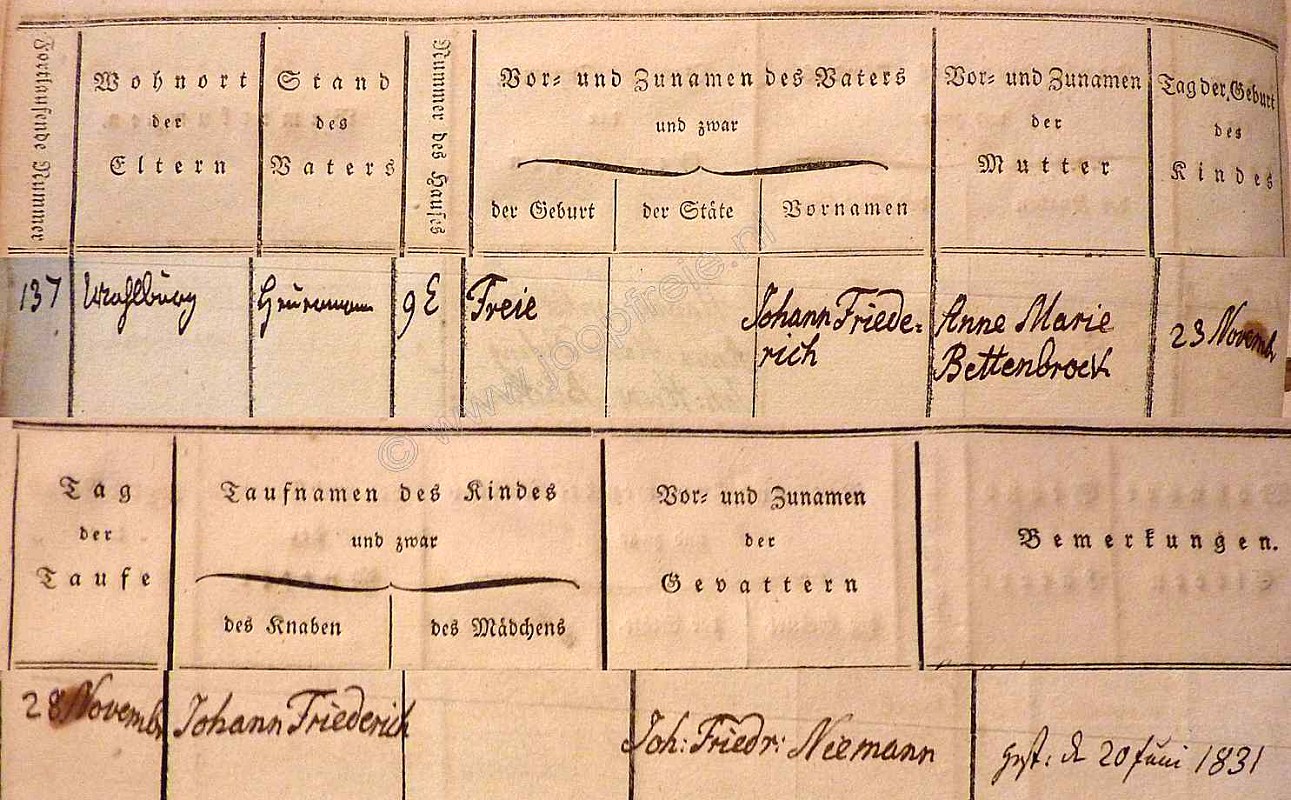 Fortlaufende Nummer
Wohnort
der
Eltern
Stand
des
Vaters
Nummer des Hauses
Vor- und Zunamen des Vaters
und zwar
der Geburt
der Stäte
Vornamen
Vor- und Zunamen
der
Mutter
Tag der Geburt
des
Kindes
137
9 E
Freie
Johann Friede-
rich
Anne Marie
Bettenbrock
23 Novembr
Tag
der
Taufe
Taufnamen des Kindes
und zwar
des Knaben
des Mädchens
Vor- und Zunamen
der
Gevattern
Bemerkungen.
28 Novembr
Johann Friederich
Joh: Friedr: Niemann
gest: d 20 Juni 1831
© www.loopfreie.nl